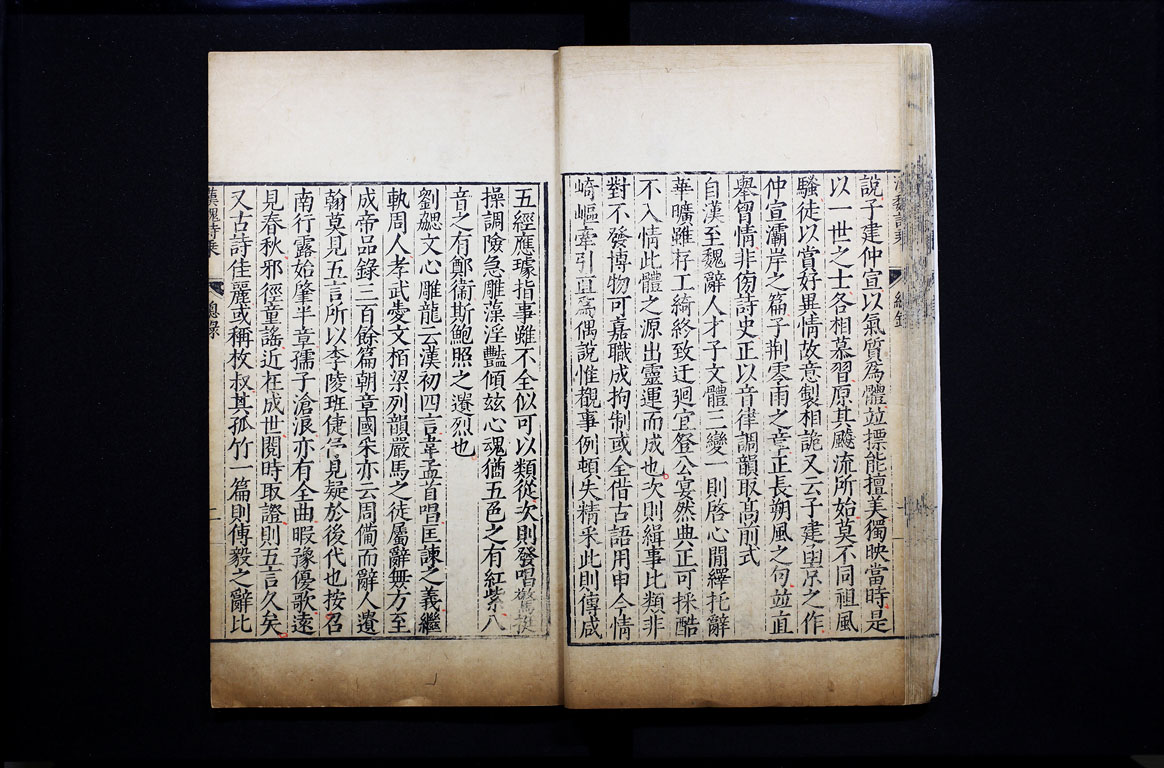 漢魏詩乘
總錄
說子建仲宣以氣質爲體並摽能擅美獨映當時是
以一世之士各相慕習原其飈流所始莫不同祖風
騷徒以賞好異情故意製相詭又云子建函京之作
仲宣灞岸之篇子荆零雨之章正長朔風之句並直
舉曾情非傍詩史正以音律調韻取髙前式
自漢至魏辭人才子文體三變一則啓心閒繹托辭
華曠雖存工綺終致迂迴宜登公宴然典正可採酷
不入情此體之源出靈運而成也次則緝事比類非
對不發博物可嘉職成拘制或全借古語用申今情
崎嶇牽引直爲偶說惟覩事例頓失精采此則傅咸
五經應璩指事雖不全似可以類從次則發唱驚挺
操調險急雕藻淫豔傾玆心魂猶五色之有紅紫八
音之有鄭衞斯鮑照之遺烈也
劉勰文心雕龍云漢初四言韋孟首唱匡諫之義繼
軌周人孝武愛文栢梁列韻嚴馬之徒屬辭無方至
成帝品錄三百餘篇朝章國采亦云周備而辭人遺
翰莫見五言所以李陵班倢伃見疑於後代也按召
南行露始肇半章孺子滄浪亦有全曲暇豫優歌遠
見春秋邪徑童謠近在成世閱時取證則五言久矣
又古詩佳麗或稱枚叔其孤竹一篇則傅毅之辭比
漢魏詩乘
總錄
二